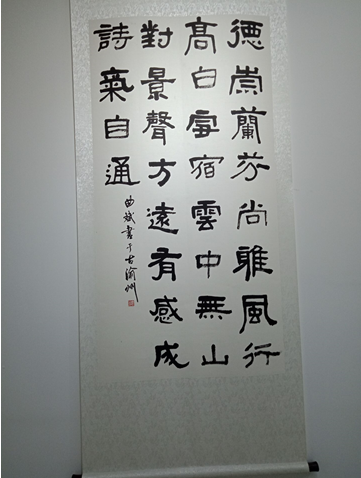 德崇蘭芬尚雅風行
髙白雪宿雲中無山
對景聲方遠有感成
詩氣自通
曲斌書于古渝州